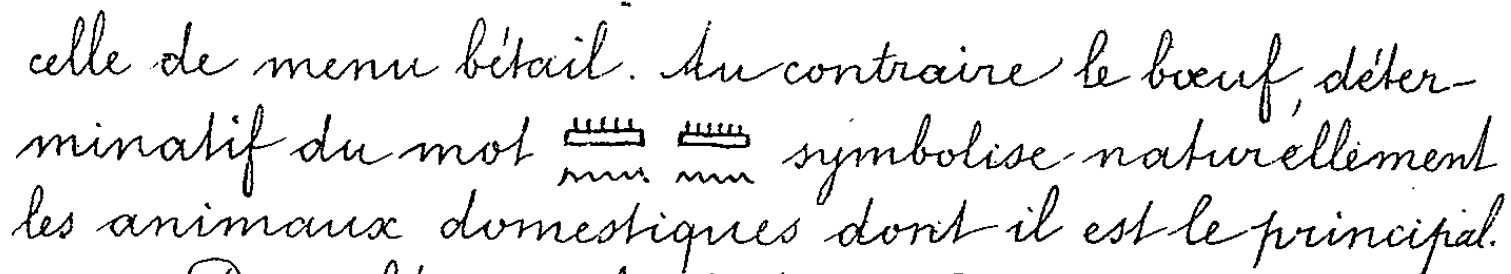 celle de menu bétail. Au contraire le bœuf, déter-
minatif du mot 𓏠𓈖 𓏠𓈖 symbolise naturellement
les animaux domestiques dont il est le principal.